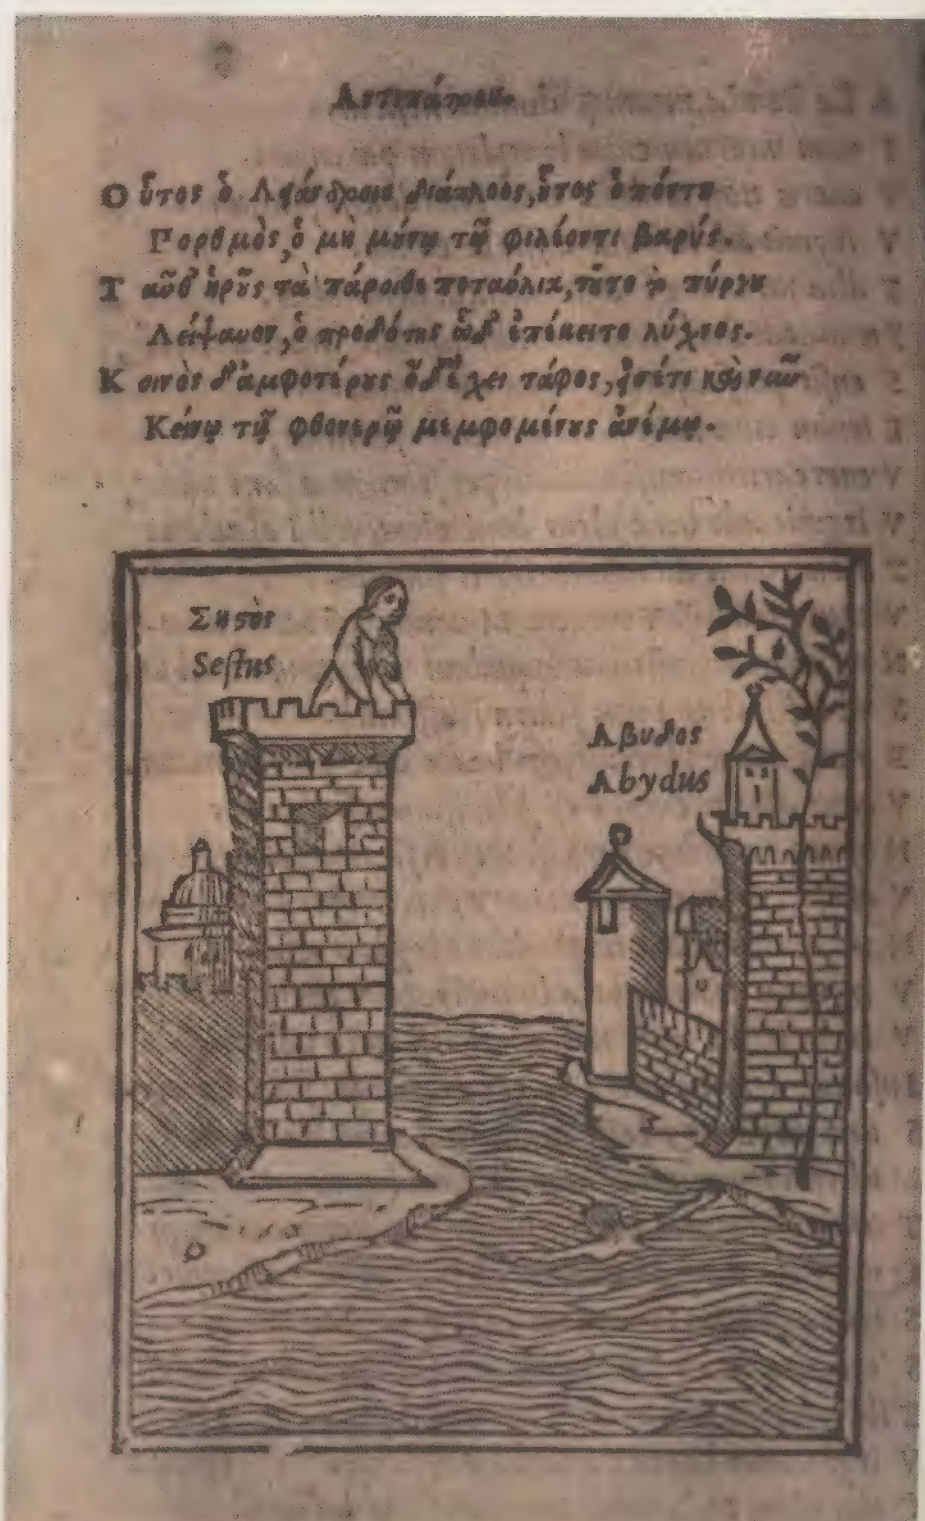 Αντιπάτρου.
Ο ὗτος ὁ Λειάνδροιο διάπλοος, οὗτος ὁ πόντου
Πορθμὸς, ὁ μὴ μούνῳ τῷ φιλέοντι βαρύς.
Τ αῦθ' ἡροῦς τὰ πάροιθε ποταύλια, τοῦτο τὸ πύργου
Λείψανον, ὁ προδότης ὧδ' ἐπέκειτο λύχνος.
Κ οινὸς δ' ἀμφοτέρους ὅδ' ἔχει τάφος, εἰσέτι καὶ νῦν
Κείνῳ τῷ φθονερῷ μεμφομένους ἀνέμῳ.
Σηστὸς
Sestus
Αβυδος
Abydus